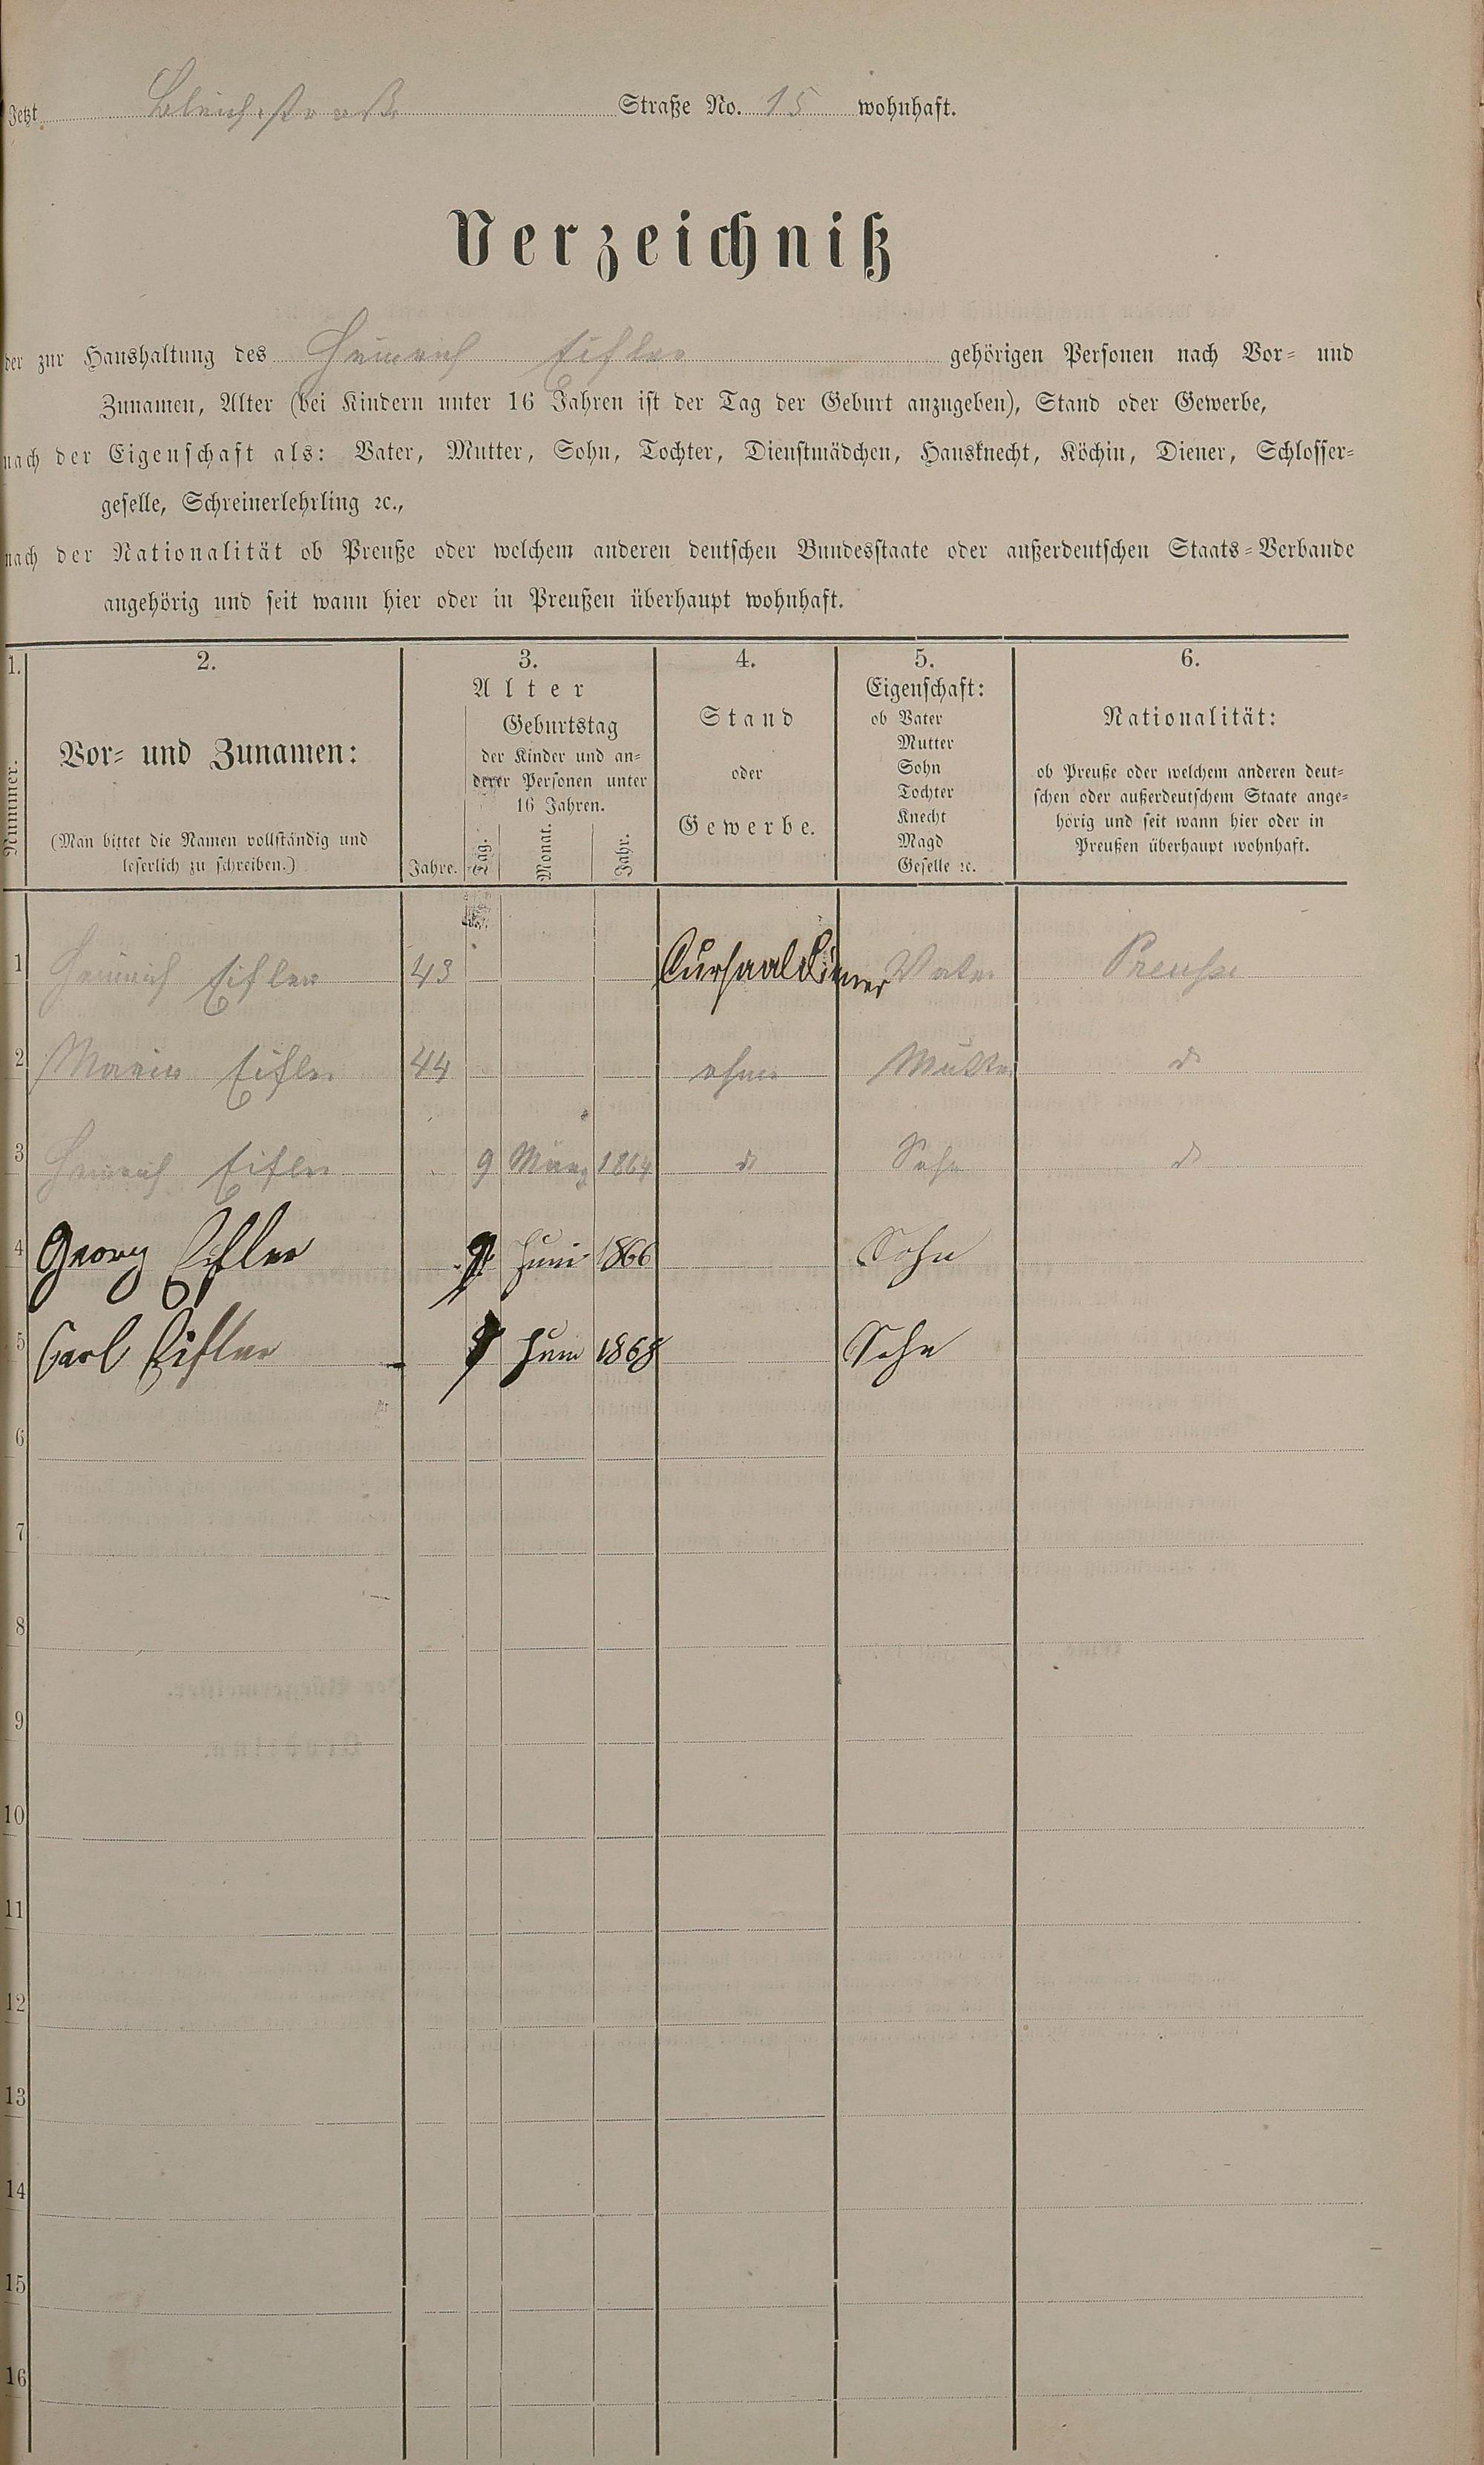 Jetzt Bleichstraße Straße No. 15 wohnhaft.
Verzeichniß
der zur Haushaltung des Heinrich Eifler gehörigen Personen nach Vor- und
Zunamen, Alter (bei Kindern unter 16 Jahren ist der Tag der Geburt anzugeben), Stand oder Gewerbe,
nach der Eigenschaft als: Vater, Mutter, Sohn, Tochter, Dienstmädchen, Hausknecht, Köchin, Diener, Schlosser-
geselle, Schreinerlehrling ꝛc.,
nach der Nationalität ob Preuße oder welchem anderen deutschen Bundesstaate oder außerdeutschen Staats-Verbande
angehörig und seit wann hier oder in Preußen überhaupt wohnhaft.
1.
Nummer.
2.
Vor- und Zunamen:
(Man bittet die Namen vollständig und
leserlich zu schreiben.)
3.
Alter
Jahre.
Geburtstag
der Kinder und an-
derer Personen unter
16 Jahren.
Tag. Monat. Jahr.
4.
Stand
oder
Gewerbe.
5.
Eigenschaft:
ob Vater
Mutter
Sohn
Tochter
Knecht
Magd
Geselle ꝛc.
6.
Nationalität:
ob Preuße oder welchem anderen deut-
schen oder außerdeutschem Staate ange-
hörig und seit wann hier oder in
Preußen überhaupt wohnhaft.
1 Heinrich Eifler 43 Cursaaldiener Vater Preuße
2 Marie Eifler 44 ohne Mutter d
3 Heinrich Eifler 9 März 1864 d Sohn d
4 Georg Eifler Juni 1866 Sohn
5 Carl Eifler Juni 1868 Sohn
6
7
8
9
10
11
12
13
14
15
16